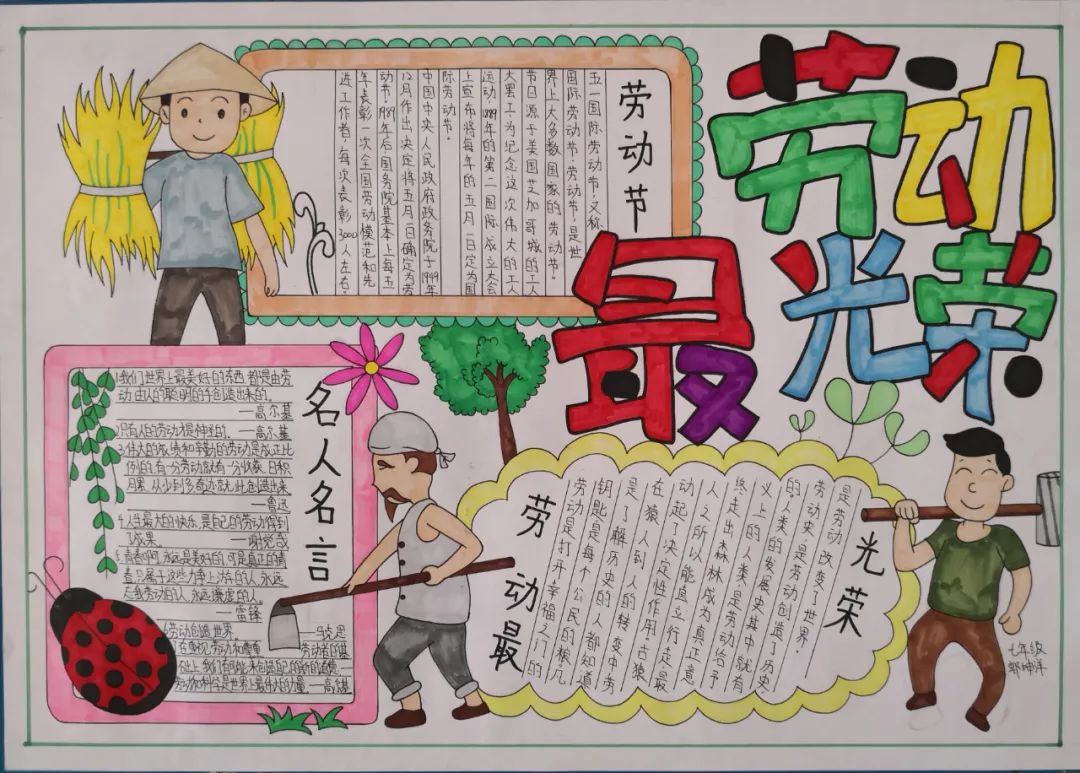 劳动最光荣
劳动节
五一国际劳动节又称
国际劳动节·劳动节,是世
界上大多数国家的劳动节·
节日源于美国芝加哥城的工人
大罢工为纪念这次伟大的工人
运动1889年的第二国际成立大会
上宣布将每年的五月一日定为国
际劳动节·
中国中央人民政府政务院于1949年
12月作出决定将五月一日确定为劳
动节·1989年后国务院基本上每五
年表彰一次全国劳动模范和先
进工作者,每次表彰3000人左右·
名人名言
1.我们世界上最美好的东西,都是由劳
动,由人的聪明的手创造出来的。
—高尔基
2.只有人的劳动才是神圣的.—高尔基
3.伟大的成绩和辛勤的劳动是成正比
例的,有一分劳动就有一分收获,日积
月累,从少到多,奇迹就此创造出来
—鲁迅
4.人生最大的快乐,是自己的劳动得到
了成果。—谢觉哉
5.青春啊,永远是美好的,可是真正的青
春,只属于这些力争上游的人,永远
忘我劳动的人,永远谦虚的人。
—雷锋
劳动创造世界. —马克思
在重视劳动和尊重劳动者的基
础上,我们有可能来创造自己的新的道德—
劳动和科学是世界上最伟大的力量.—高尔基
劳动最
光荣
劳动是打开幸福之门的
钥匙是每个公民的粮凡
是了解历史的人都知道
在猿人到人的转变中劳
动起了决定性作用·古猿
人之所以能直立行走最
终走出森林成为真正意
义上的人类是劳动给予
的人类的发展史其中就有
劳动史·是劳动创造了历史·
是劳动改变了世界·
七年级